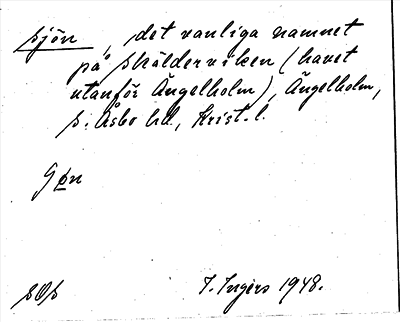 sjön, det vanliga namnet
på Skälderviken (havet
utanför Ängelholm), Ängelholm,
S. Åsbo hd, Krist. l.
I. Ingers 1948.